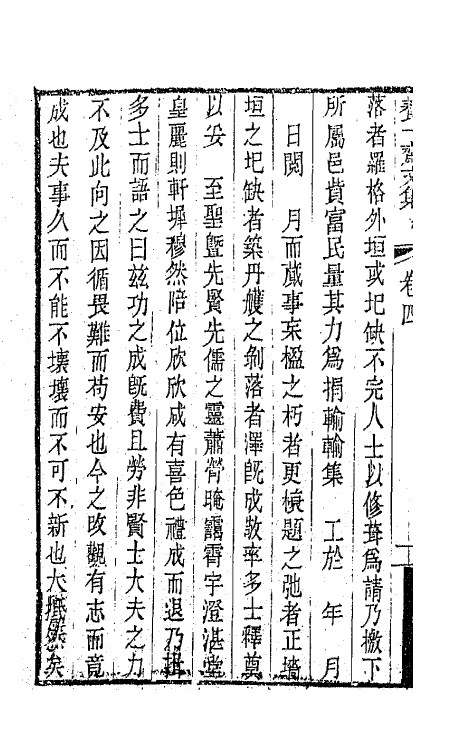 養一齋文集
卷四
落者羅格外垣或圮缺不完人士以修葺爲請乃檄下
所屬邑貲富民量其力爲捐輸輸集　工於　年　月
日閱　月而蕆事宋楹之朽者更榱題之弛者正墻
垣之圮缺者築丹雘之剝落者澤旣成敬率多士釋奠
以妥　至聖曁先賢先儒之靈蕭膋晻靄霄宇澄湛堂
皇麗則軒墀穆然陪位欣欣咸有喜色禮成而退乃揖
多士而語之曰玆功之成旣費且勞非賢士大夫之力
不及此向之因循畏難而苟安也今之改觀有志而竟
成也夫事久而不能不壞壞而不可不新也大抵然矣